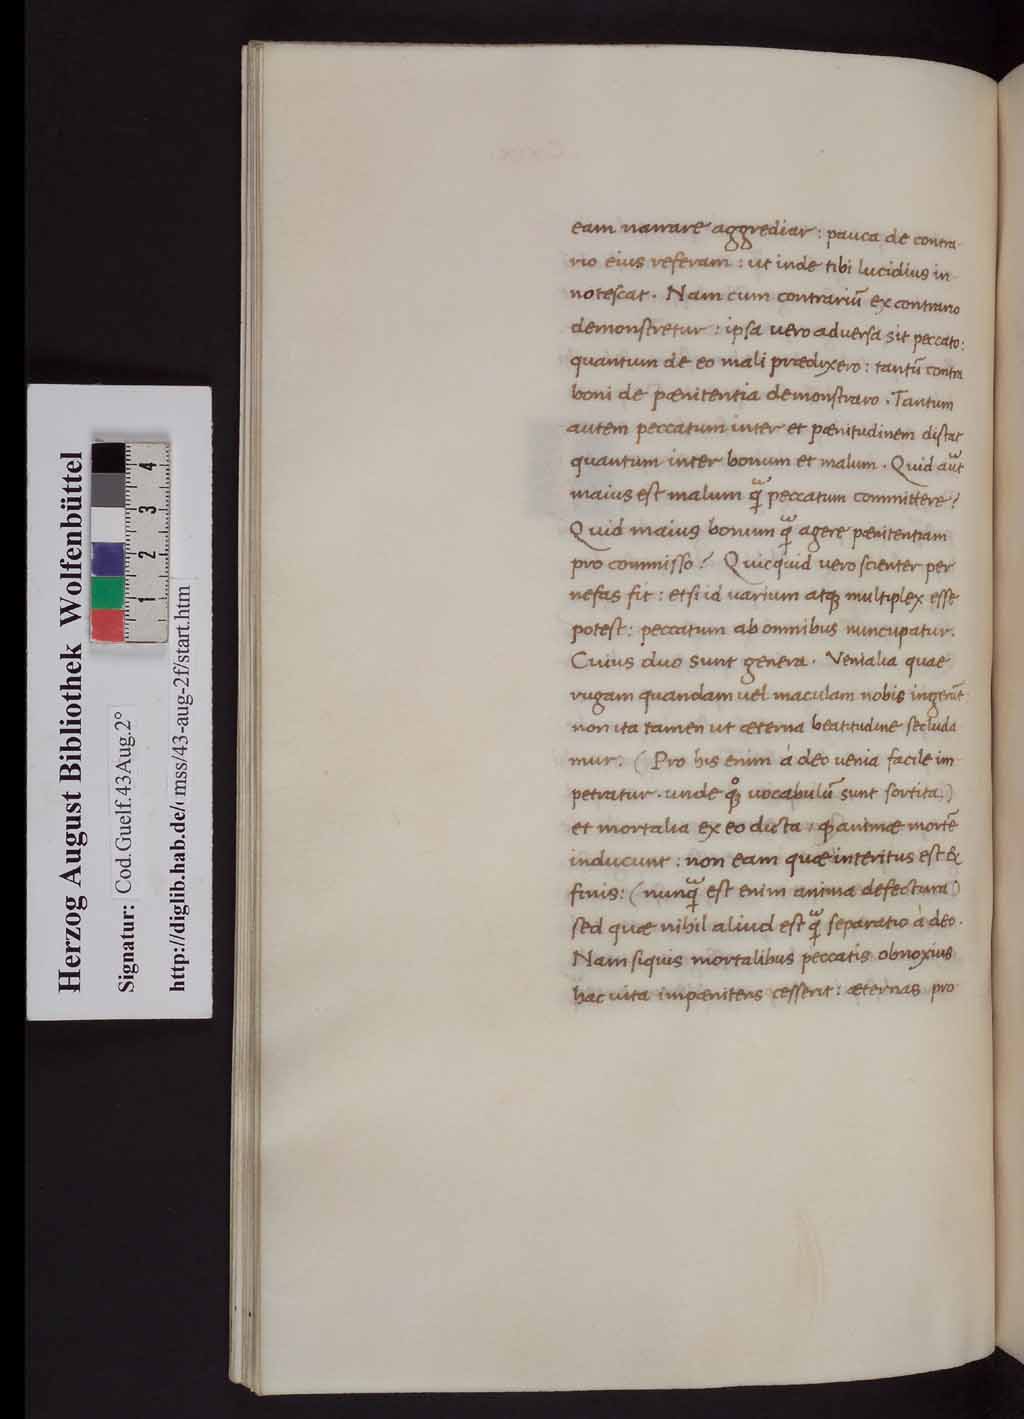 eam narrare aggrediar : pauca de contra-
rio eius referam : ut inde tibi lucidius in-
notescat . Nam cum contrariū ex contrario
demonstretur : ipsa uero aduersa sit peccato:
quantum de eo mali prædixero : tantū contra
boni de pænitentia demonstraro . Tantum
autem peccatum inter et pænitudinem distat
quantum inter bonum et malum . Quid aūt
maius est malum q̄ peccatum committere?
Quid maius bonum q̄ agere pænitentiam
pro commisso? Quicquid uero scienter per
nefas fit : etsi id uarium atq; multiplex esse
potest : peccatum ab omnibus nuncupatur.
Cuius duo sunt genera . Venialia quae
rugam quandam uel maculam nobis ingerūt
non ita tamen ut æterna beatitudine secluda
mur. ( Pro his enim à deo uenia facile im-
petratur . unde qͦ; uocabulū sunt sortita )
et mortalia ex eo dicta , ꝙ animæ mortē
inducunt : non eam quæ interitus est &
finis: ( nunq̄ est enim anima defectura )
sed quæ nihil aliud est q̄ separatio à deo .
Nam siquis mortalibus peccatis obnoxius
hac uita impænitens cesserit : æternas pro
Herzog August Bibliothek Wolfenbüttel
Signatur: Cod.Guelf.43Aug.2°
http://diglib.hab.de/ mss/43-aug-2f/start.htm
1 2 3 4